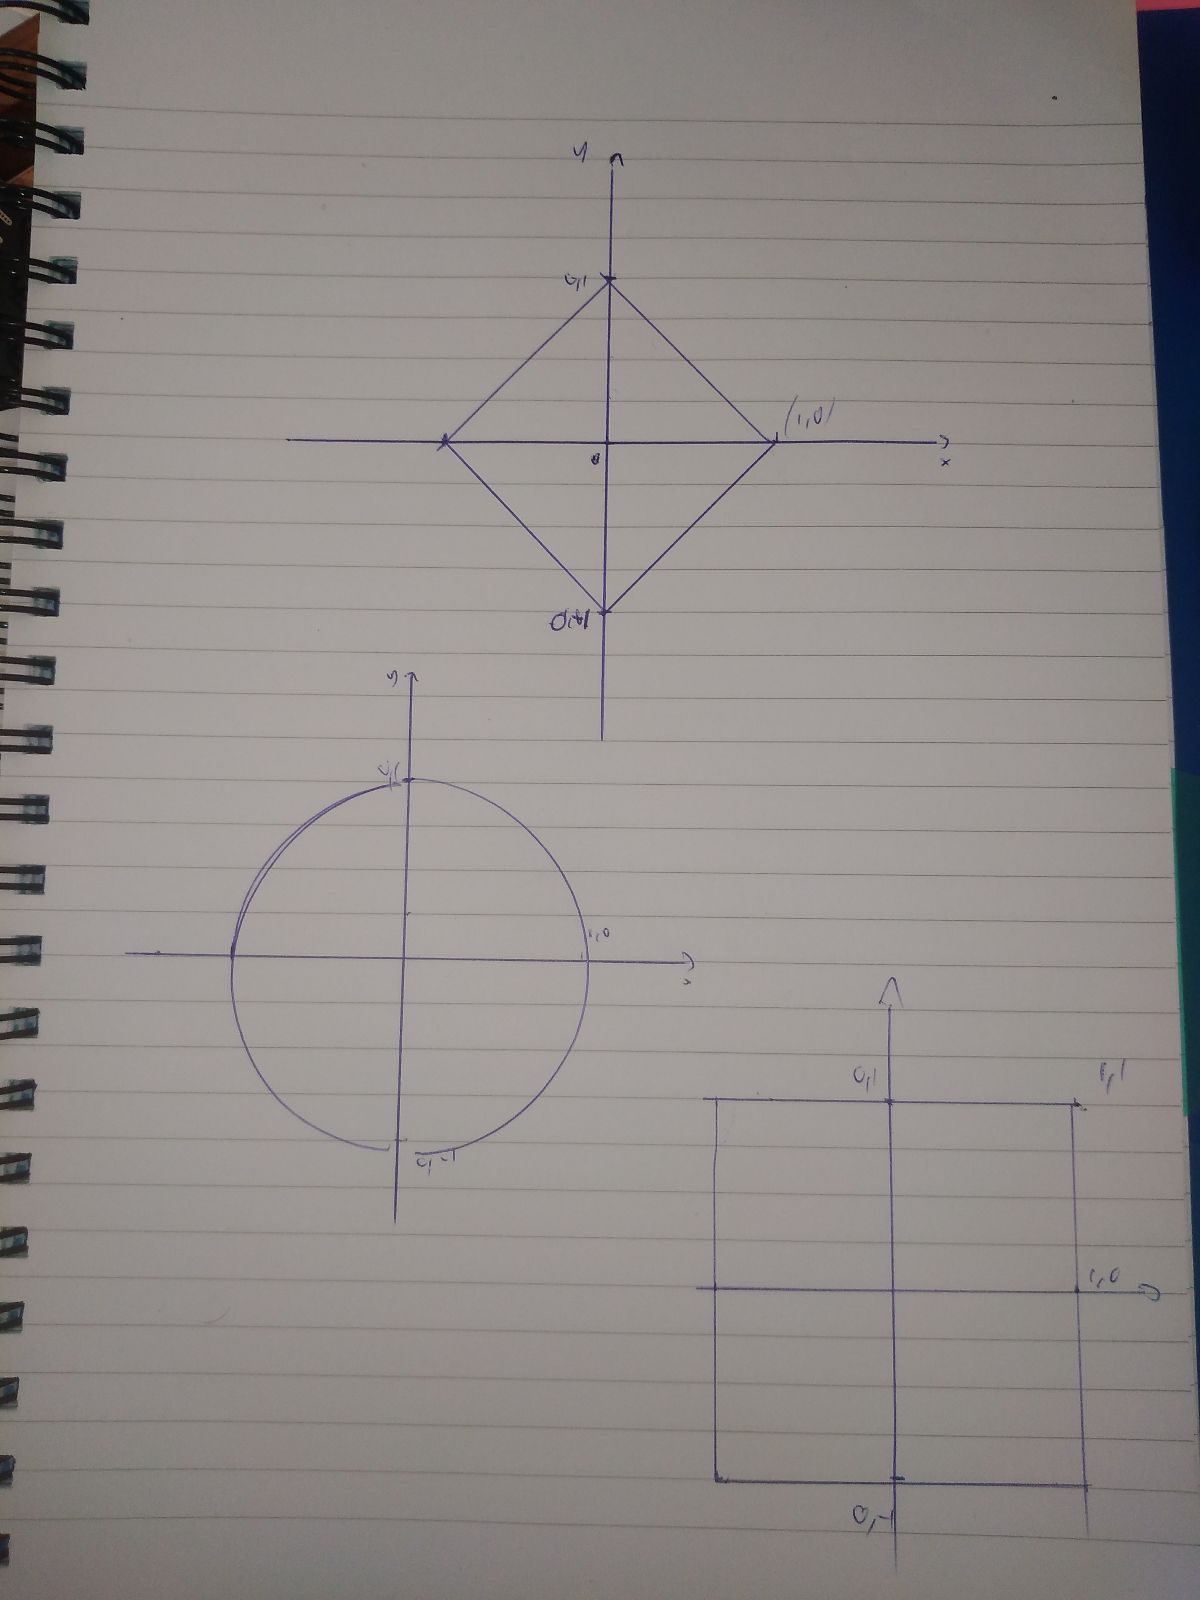 y
0,1
(1,0)
x
y
0,1
1,0
x
0,-1
0,1
1,1
1,0
0,-1